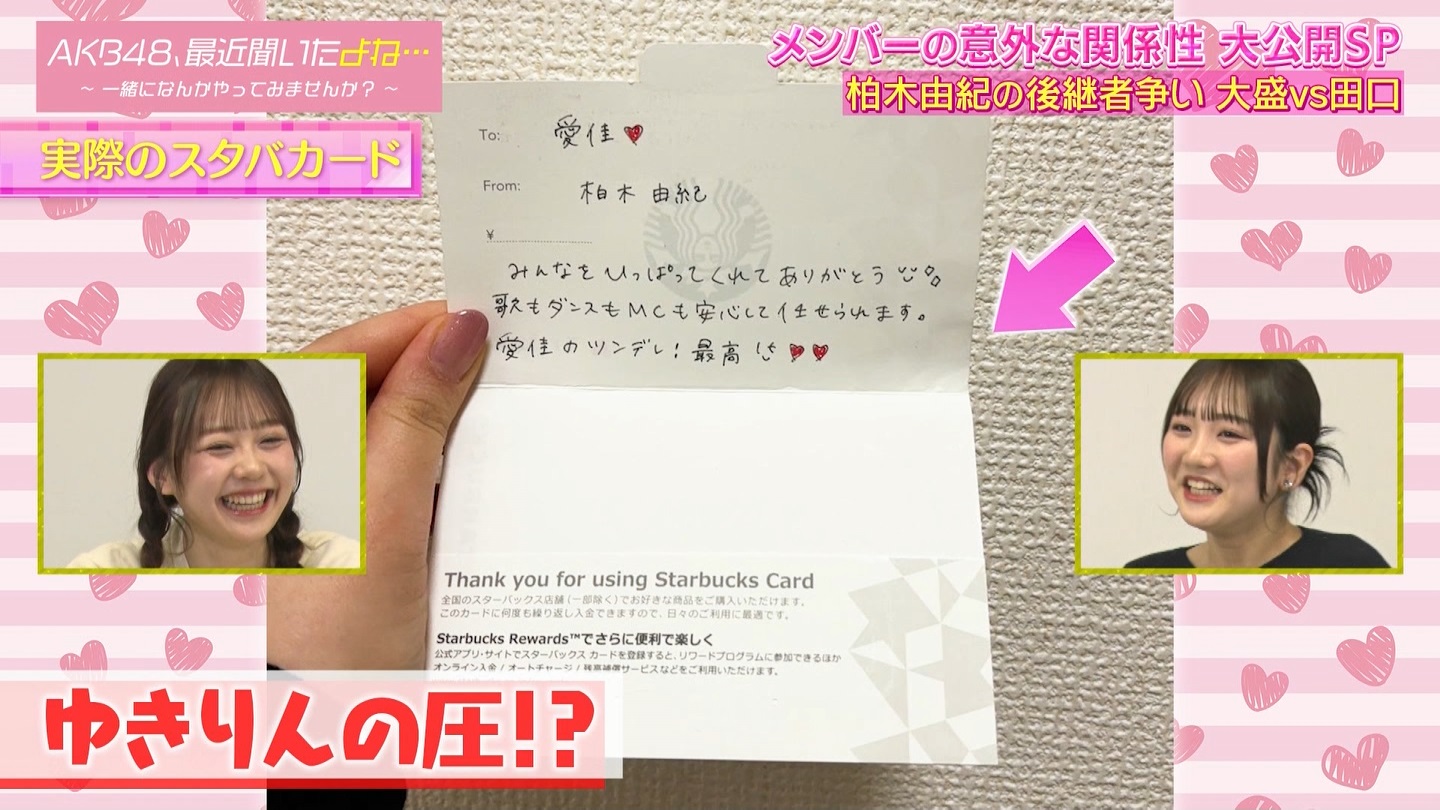 AKB48、最近聞いたよね…
～ 一緒になんかやってみませんか？ ～
メンバーの意外な関係性 大公開SP
柏木由紀の後継者争い 大盛vs田口
実際のスタバカード
To: 愛佳
From: 柏木 由紀
¥
みんなをひっぱってくれてありがとう
歌もダンスもMCも安心して任せられます。
愛佳のツンデレ! 最高
Thank you for using Starbucks Card
全国のスターバックス店舗（一部除く）でお好きな商品をご購入いただけます。
このカードに何度も繰り返し入金できますので、日々のご利用に最適です。
Starbucks Rewards™でさらに便利で楽しく
公式アプリ・サイトでスターバックス カードを登録すると、リワードプログラムに参加できるほか
オンライン入金 / オートチャージ / 残高補償サービスなどをご利用いただけます。
ゆきりんの圧!?